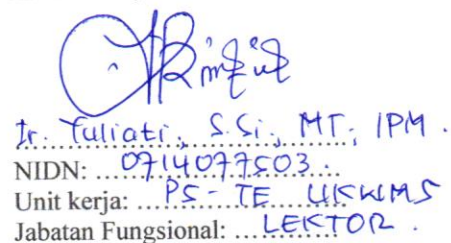 Ir. Yuliati, S.Si., MT, IPM.
NIDN: 0714077503.
Unit kerja: PS - TE UKWMS
Jabatan Fungsional: LEKTOR.